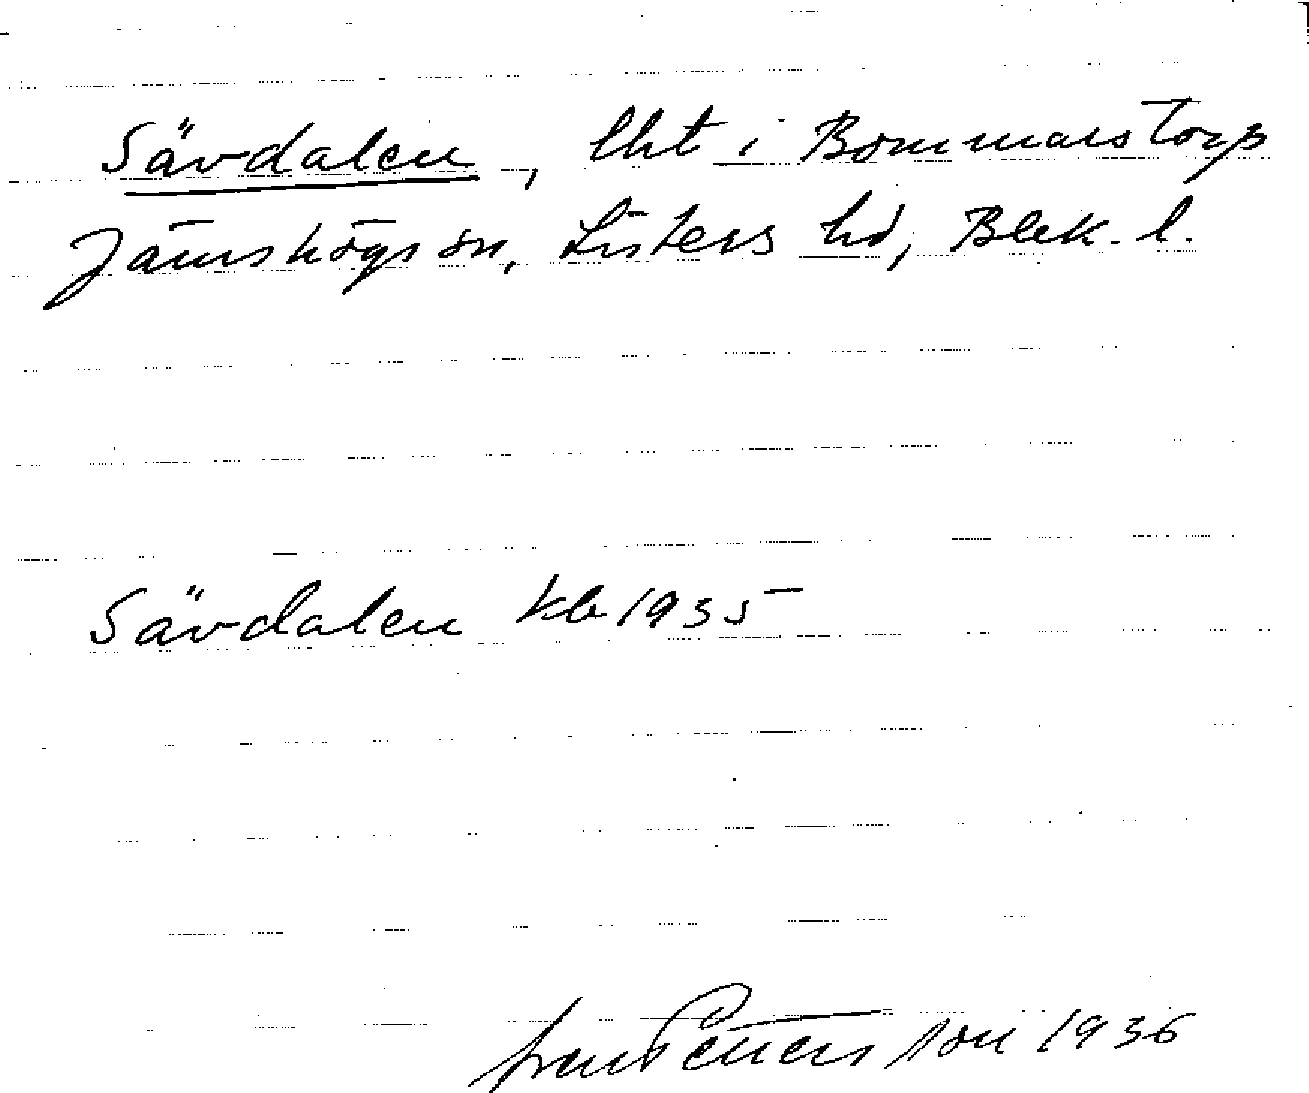 Sävdalen, lht i Bommarstorp
Jämshögs sn, Listers hd, Blek. l.
Sävdalen kb 1935
Sven Petersson 1936